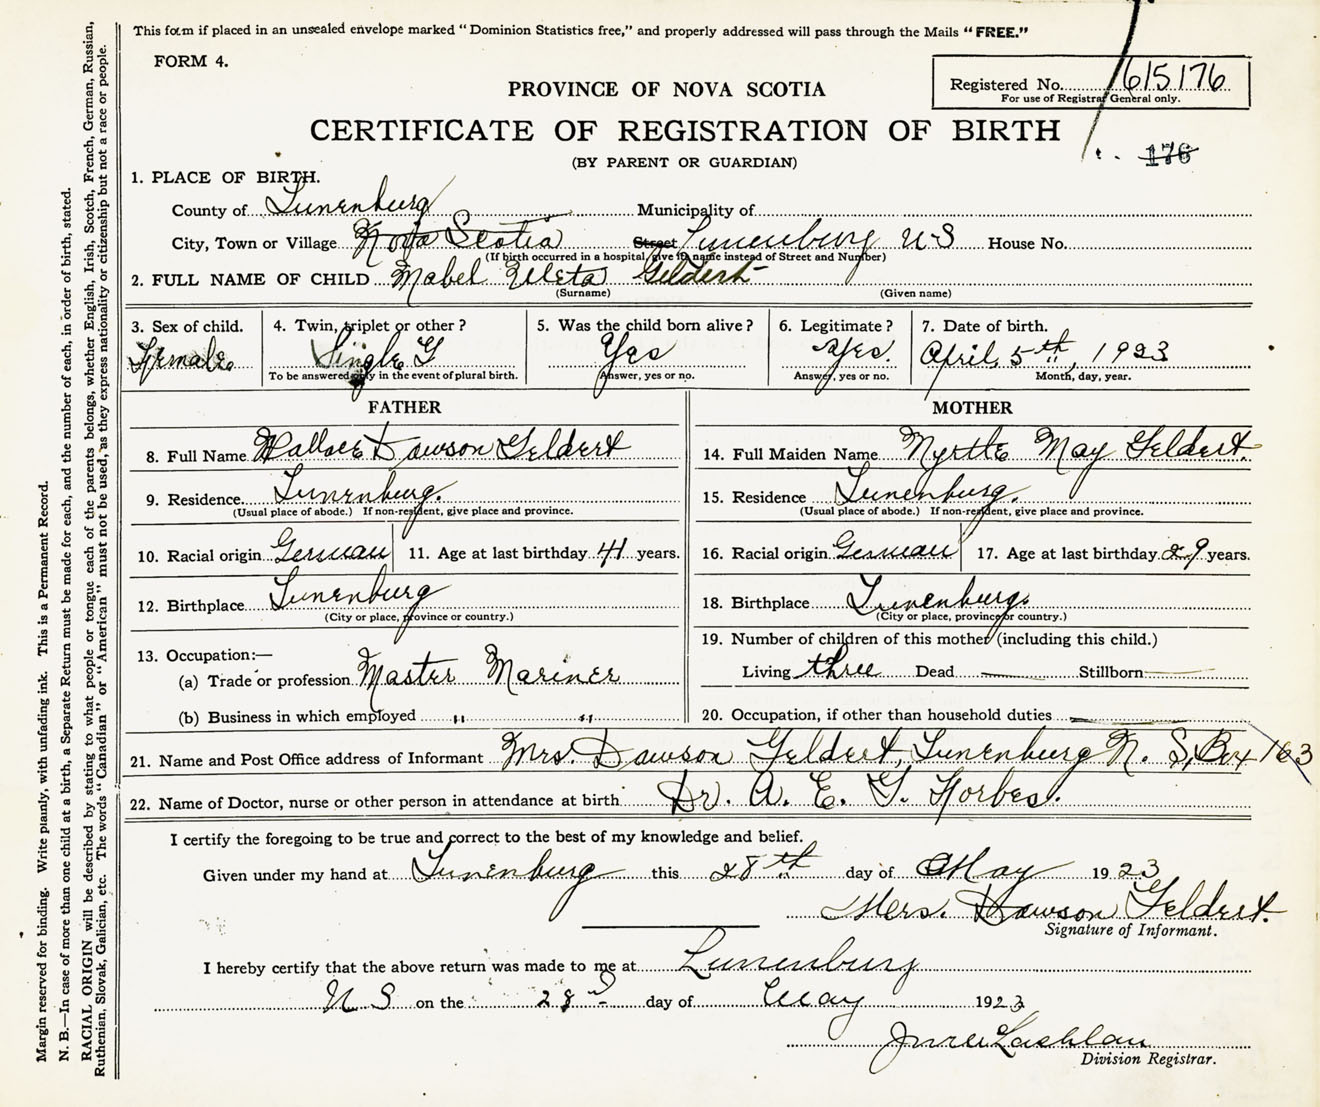 This form if placed in an unsealed envelope marked "Dominion Statistics free," and properly addressed will pass through the Mails "FREE."
FORM 4.
Registered No. 615176
For use of Registrar General only.
PROVINCE OF NOVA SCOTIA
CERTIFICATE OF REGISTRATION OF BIRTH
176
(BY PARENT OR GUARDIAN)
1. PLACE OF BIRTH.
County of Lunenburg Municipality of
City, Town or Village Nova Scotia Street Lunenburg N S House No.
(If birth occurred in a hospital, give its name instead of Street and Number)
2. FULL NAME OF CHILD Mabel Geldert
(Surname) (Given name)
3. Sex of child. 4. Twin, triplet or other? 5. Was the child born alive? 6. Legitimate? 7. Date of birth.
Female Single Yes Yes. April 5th, 1923
To be answered only in the event of plural birth. Answer, yes or no. Answer, yes or no. Month, day, year.
FATHER
8. Full Name Wallace Dawson Geldert
9. Residence Lunenburg.
(Usual place of abode.) If non-resident, give place and province.
10. Racial origin German 11. Age at last birthday 41 years.
12. Birthplace Lunenburg
(City or place, province or country.)
13. Occupation:—
(a) Trade or profession Master Mariner
(b) Business in which employed " "
MOTHER
14. Full Maiden Name Myrtle May Geldert.
15. Residence Lunenburg.
(Usual place of abode.) If non-resident, give place and province.
16. Racial origin German 17. Age at last birthday 29 years.
18. Birthplace Lunenburg.
(City or place, province or country.)
19. Number of children of this mother (including this child.)
Living three Dead — Stillborn —
20. Occupation, if other than household duties —
21. Name and Post Office address of Informant Mrs. Dawson Geldert, Lunenburg N. S, Box 163
22. Name of Doctor, nurse or other person in attendance at birth Dr. A. E. G. Forbes.
I certify the foregoing to be true and correct to the best of my knowledge and belief.
Given under my hand at Lunenburg this 28th day of May 1923
Mrs. Dawson Geldert.
Signature of Informant.
I hereby certify that the above return was made to me at Lunenburg
N S on the 28 day of May 1923
Division Registrar.
Margin reserved for binding. Write plainly, with unfading ink. This is a Permanent Record.
N. B.—In case of more than one child at a birth, a Separate Return must be made for each, and the number of each, in order of birth, stated.
RACIAL ORIGIN will be described by stating to what people or tongue each of the parents belongs, whether English, Irish, Scotch, French, German, Russian,
Ruthenian, Slovak, Galician, etc. The words "Canadian" or "American" must not be used, as they express nationality or citizenship but not a race or people.